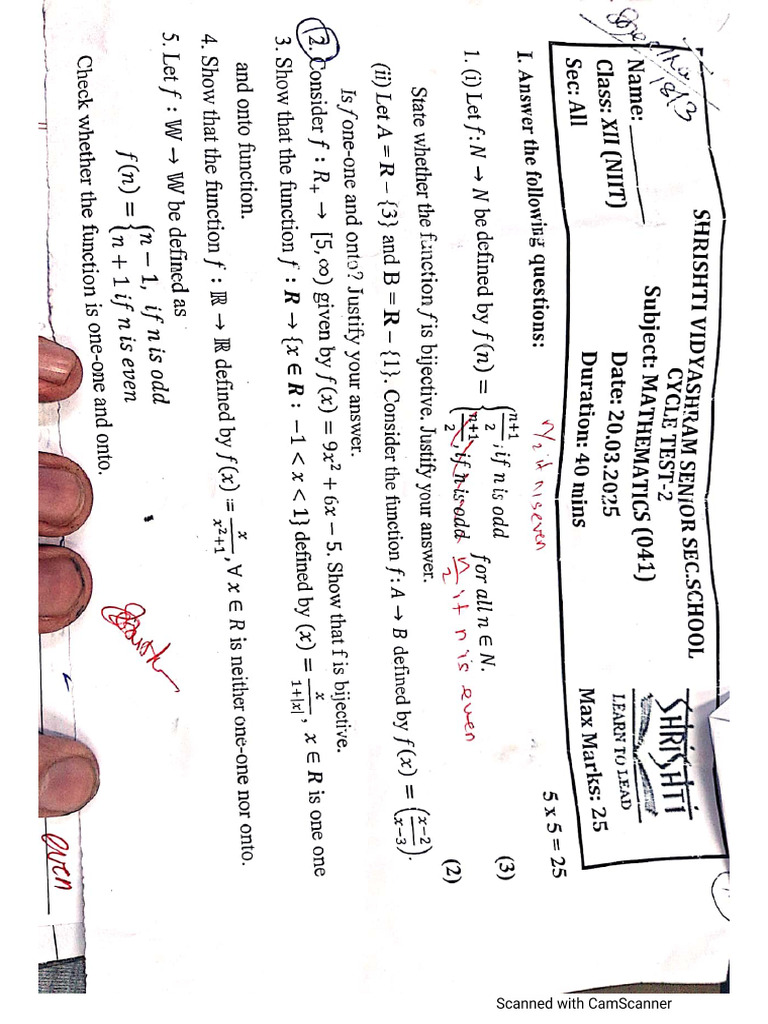 SHRISHTI VIDYASHRAM SENIOR SEC.SCHOOL
CYCLE TEST-2
SHRISHTI
LEARN TO LEAD
Name:
Subject: MATHEMATICS (041)
Class: XII (NIIT)
Date: 20.03.2025
Max Marks: 25
Sec: All
Duration: 40 mins
I. Answer the following questions:
5 x 5 = 25
n/2 if n is even
1. (i) Let f: N → N be defined by f(n) = { (n+1)/2 ; if n is odd for all n ∈ N. (3)
(n+1)/2 , if n is odd n/2 if n is even
State whether the function f is bijective. Justify your answer.
(ii) Let A = R – {3} and B = R – {1}. Consider the function f: A → B defined by f(x) = ((x−2)/(x−3)). (2)
Is f one-one and onto? Justify your answer.
2. Consider f : R₊ → [5, ∞) given by f(x) = 9x² + 6x – 5. Show that f is bijective.
3. Show that the function f : R → {x ∈ R : −1 < x < 1} defined by (x) = x/(1+|x|), x ∈ R is one one
and onto function.
4. Show that the function f : ℝ → ℝ defined by f(x) = x/(x²+1), ∀ x ∈ R is neither one-one nor onto.
5. Let f : 𝕎 → 𝕎 be defined as
f(n) = { n − 1, if n is odd
n + 1 if n is even
Check whether the function is one-one and onto.
even
Scanned with CamScanner